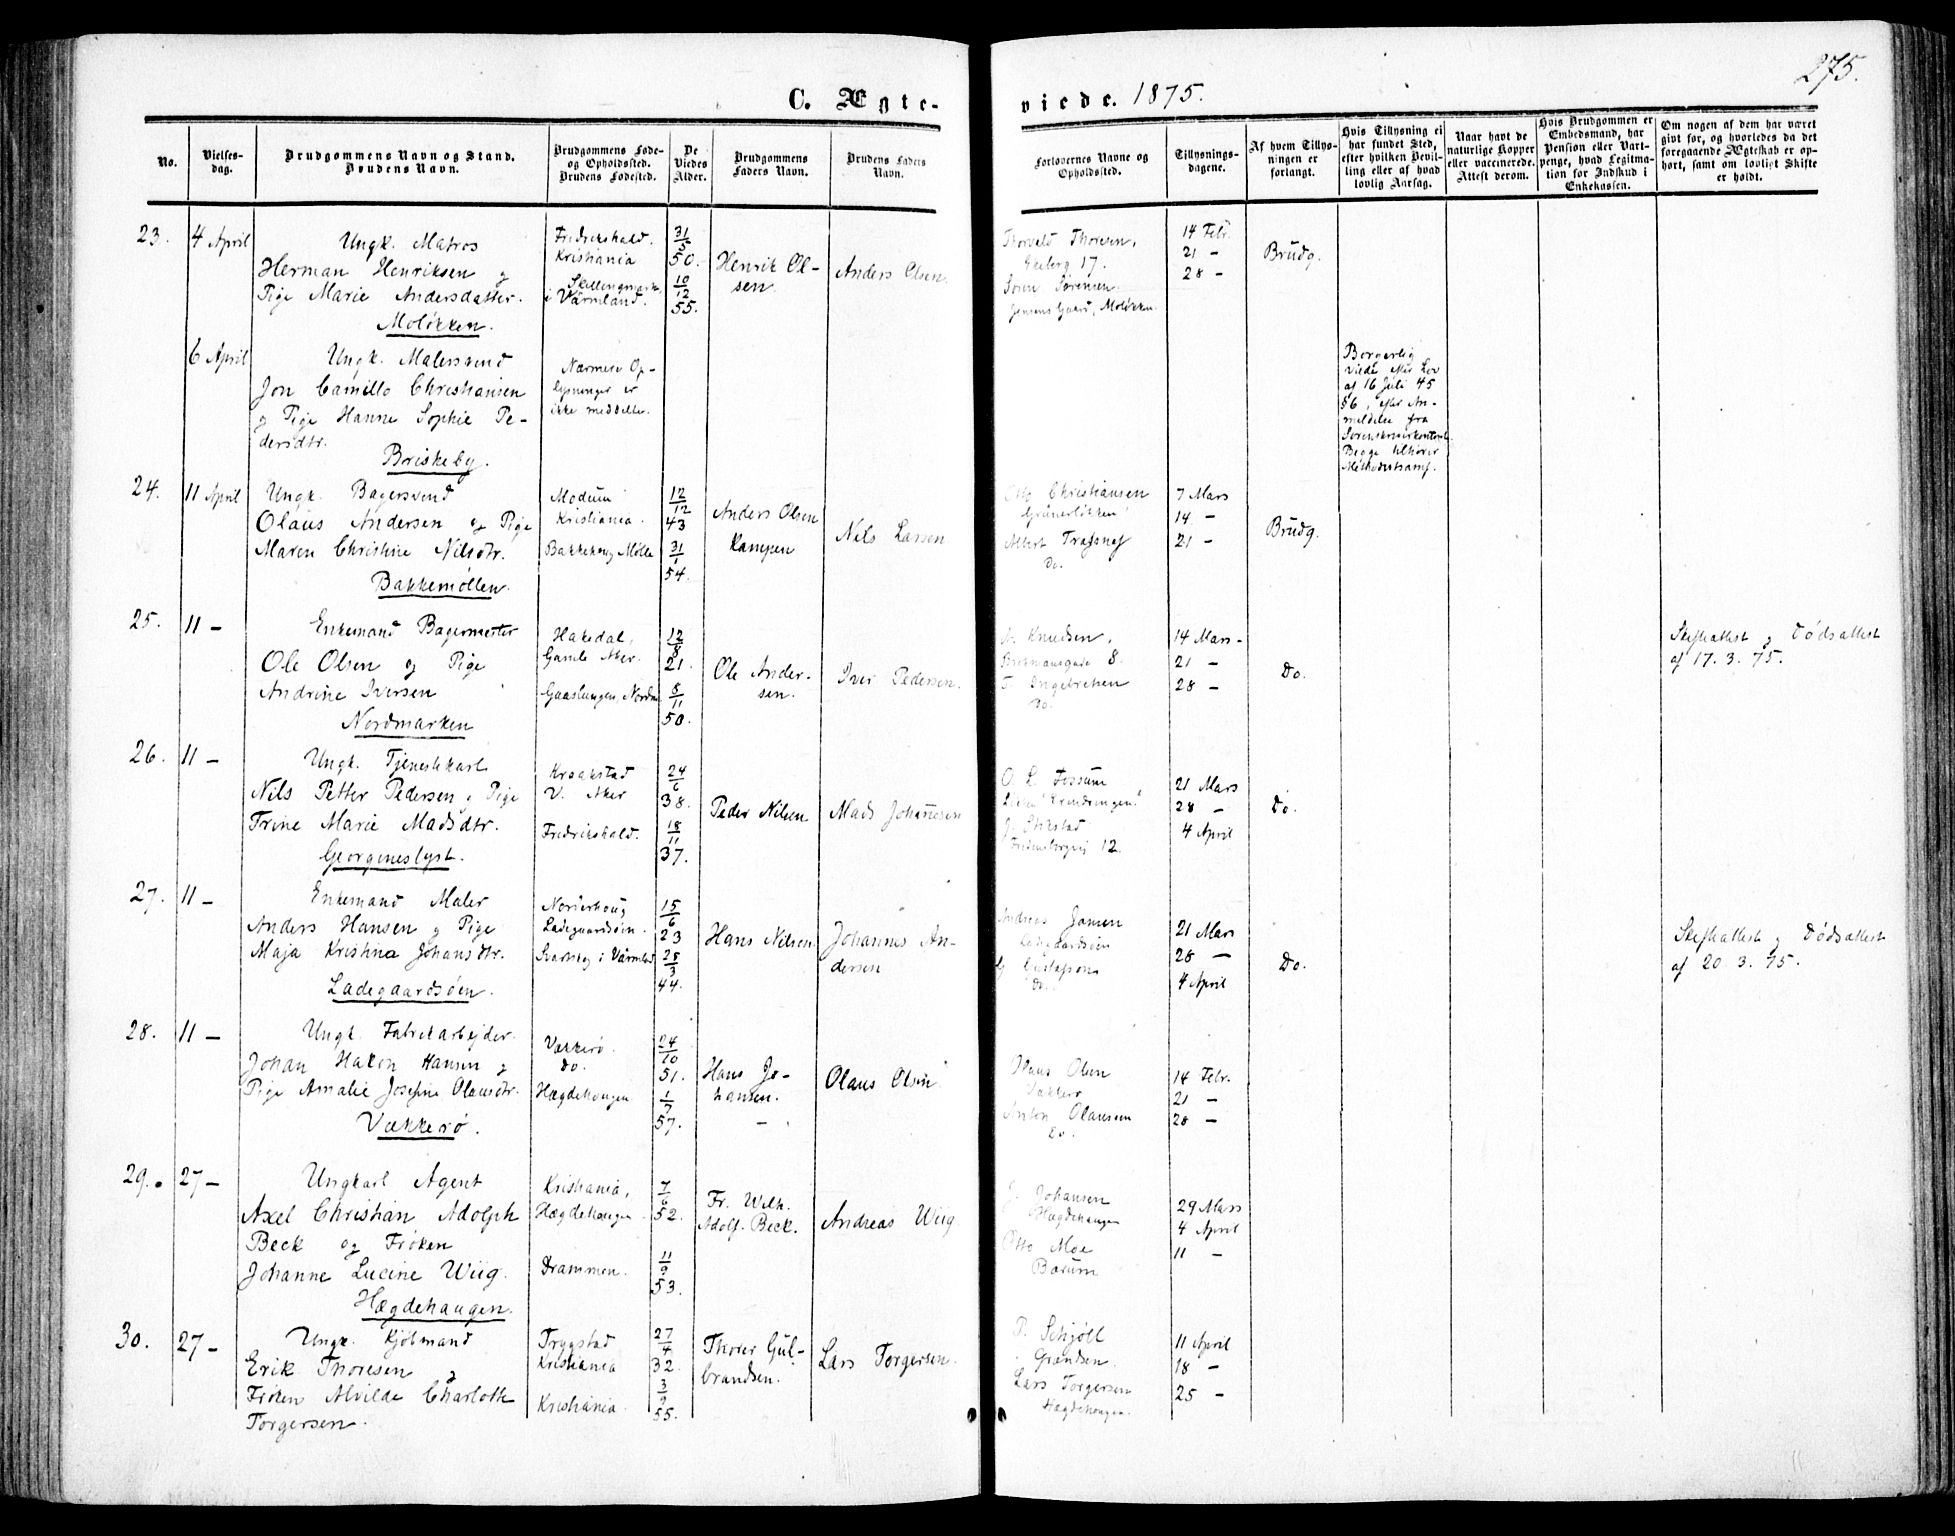 275.
C. Ægte-
viede. 1875.
No.
Vielses-
dag.
Brudgommens Navn og Stand.
Brudens Navn.
Brudgommens Føde-
og Opholdssted.
Brudens Fødested.
De
Viedes
Alder.
Brudgommens
Faders Navn.
Brudens Faders
Navn.
Forlovernes Navne og
Opholdssted.
Tillysnings-
dagene.
Af hvem Tillys-
ningen er
forlangt.
Hvis Tillysning ei
har fundet Sted,
efter hvilken Bevil-
ling eller af hvad
lovlig Aarsag.
Naar havt de
naturlige Kopper
eller vaccinerede.
Attest derom.
Hvis Brudgommen er
Embedsmand, har
Pension eller Vart-
penge, hvad Legitima-
tion for Indskud i
Enkekassen.
Om nogen af dem har været
givt før, og hvorledes da det
foregaaende Ægteskab er op-
hørt, samt om lovligt Skifte
er holdt.
23. 4 April
Ungk. Matros
Herman Henriksen og
Pige Marie Andersdatter.
Moløkken.
Fredrikshald.
Kristiania
Skillingmark,
i Värmland.
31/5 50.
10/12 55.
Henrik Ol-
sen.
Anders Olsen.
Thorvald Thoresen,
Ekeberg 17.
Søren Sørensen
Jensens Gaard, Moløkken.
14 Febr.
21 —
28 —
Brudg.
6 April
Ungk. Malersvend
Jon Camillo Christiansen
og Pige Hanne Sophie Pe-
dersdtr.
Briskeby.
Nærmere Op-
lysninger er
ikke meddelte.
Borgerlig
viede efter Lov
af 16 Juli 45
§6, efter An-
meldelse fra
Sorenskriverkontoret.
Begge tilhører
Methodistsamf.
24. 11 April
Ungk. Bagersvend
Olaus Andersen og Pige
Maren Christine Nilsdtr.
Bakkemøllen.
Modum
Kristiania.
Bakkehaug Mølle
12/12 43
31/1 54.
Anders Olsen
Kampen
Nils Larsen
Otto Christiansen
Grünerløkken
Albert
Do.
7 Mars
14 —
21 —
Brudg.
25. 11 —
Enkemand Bagermester
Ole Olsen og Pige
Andrine Iversen
Nordmarken
Hakedal,
Gamle Aker.
Gaaslungen, Nordm
12/8 21.
8/11 50.
Ole Ander-
sen.
Iver Pedersen.
A. Knudsen,
8.
T. Ingebretsen
Do.
14 Mars —
21 —
28 —
Do.
Skifteattest og Dødsattest
af 17. 3. 75.
26. 11 —
Ungk. Tjenestekarl
Nils Petter Pedersen og Pige
Trine Marie Madsdtr.
Georgineslyst.
Kraakstad
V. Aker
Fredrikshald.
24/6 38.
18/11 37.
Peder Nilsen
Mads Johannesen
O. L. Fossum
J. Stikstad
Fredensborgvej 12.
21 Mars
28 —
4 April
Do.
27. 11 —
Enkemand Maler
Anders Hansen og Pige
Maja Kristina Johansdtr.
Ladegaardsøen.
Norderhoug
Ladegaardsøen.
Svartskog i Värmland
15/6 23
28/3 44.
Hans Nilsen.
Johannes An-
dersen
Andreas Jansen
Ladegaardsøen
G Gustafson
Do.
21 Mars
28 —
4 April
Do.
Skifteattest og Dødsattest
af 20. 3. 75.
28. 11 —
Ungk. Fabrikarbejder.
Johan Hakon Hansen og
Pige Amalie Josefine Olausdtr.
Vækkerø.
Vækkerø.
Do.
Hægdehaugen
24/10 51.
1/7 57.
Hans Jo-
hansen.
Olaus Olsen
Olaus Olsen
Vækkerø
Anton Olaussen
Do.
14 Febr.
21 —
28 —
29. 27 —
Ungkarl Agent
Axel Christian Adolph
Beck og Frøken
Johanne Lucine Wiig.
Hægdehaugen.
Kristiania,
Hægdehaugen.
Drammen.
7/6 52.
11/9 53.
Fr. Wilh.
Adolf. Beck.
Andreas Wiig.
J. Johansen
Hægdehaugen
Otto Moe
Bærum
29 Mars
4 April
11 —
30. 27 —
Ungk. Kjøbmand
Erik Thoresen og
Frøken Alvilde Charlotte
Torgersen.
Trygstad
Kristiania
Kristiania.
27/4 32.
3/9 55.
Thorer Gul-
brandsen.
Lars Torgersen.
P. Schjøll
Grændsen.
Lars Torgersen
Hægdehaugen.
11 April
18 —
25 —